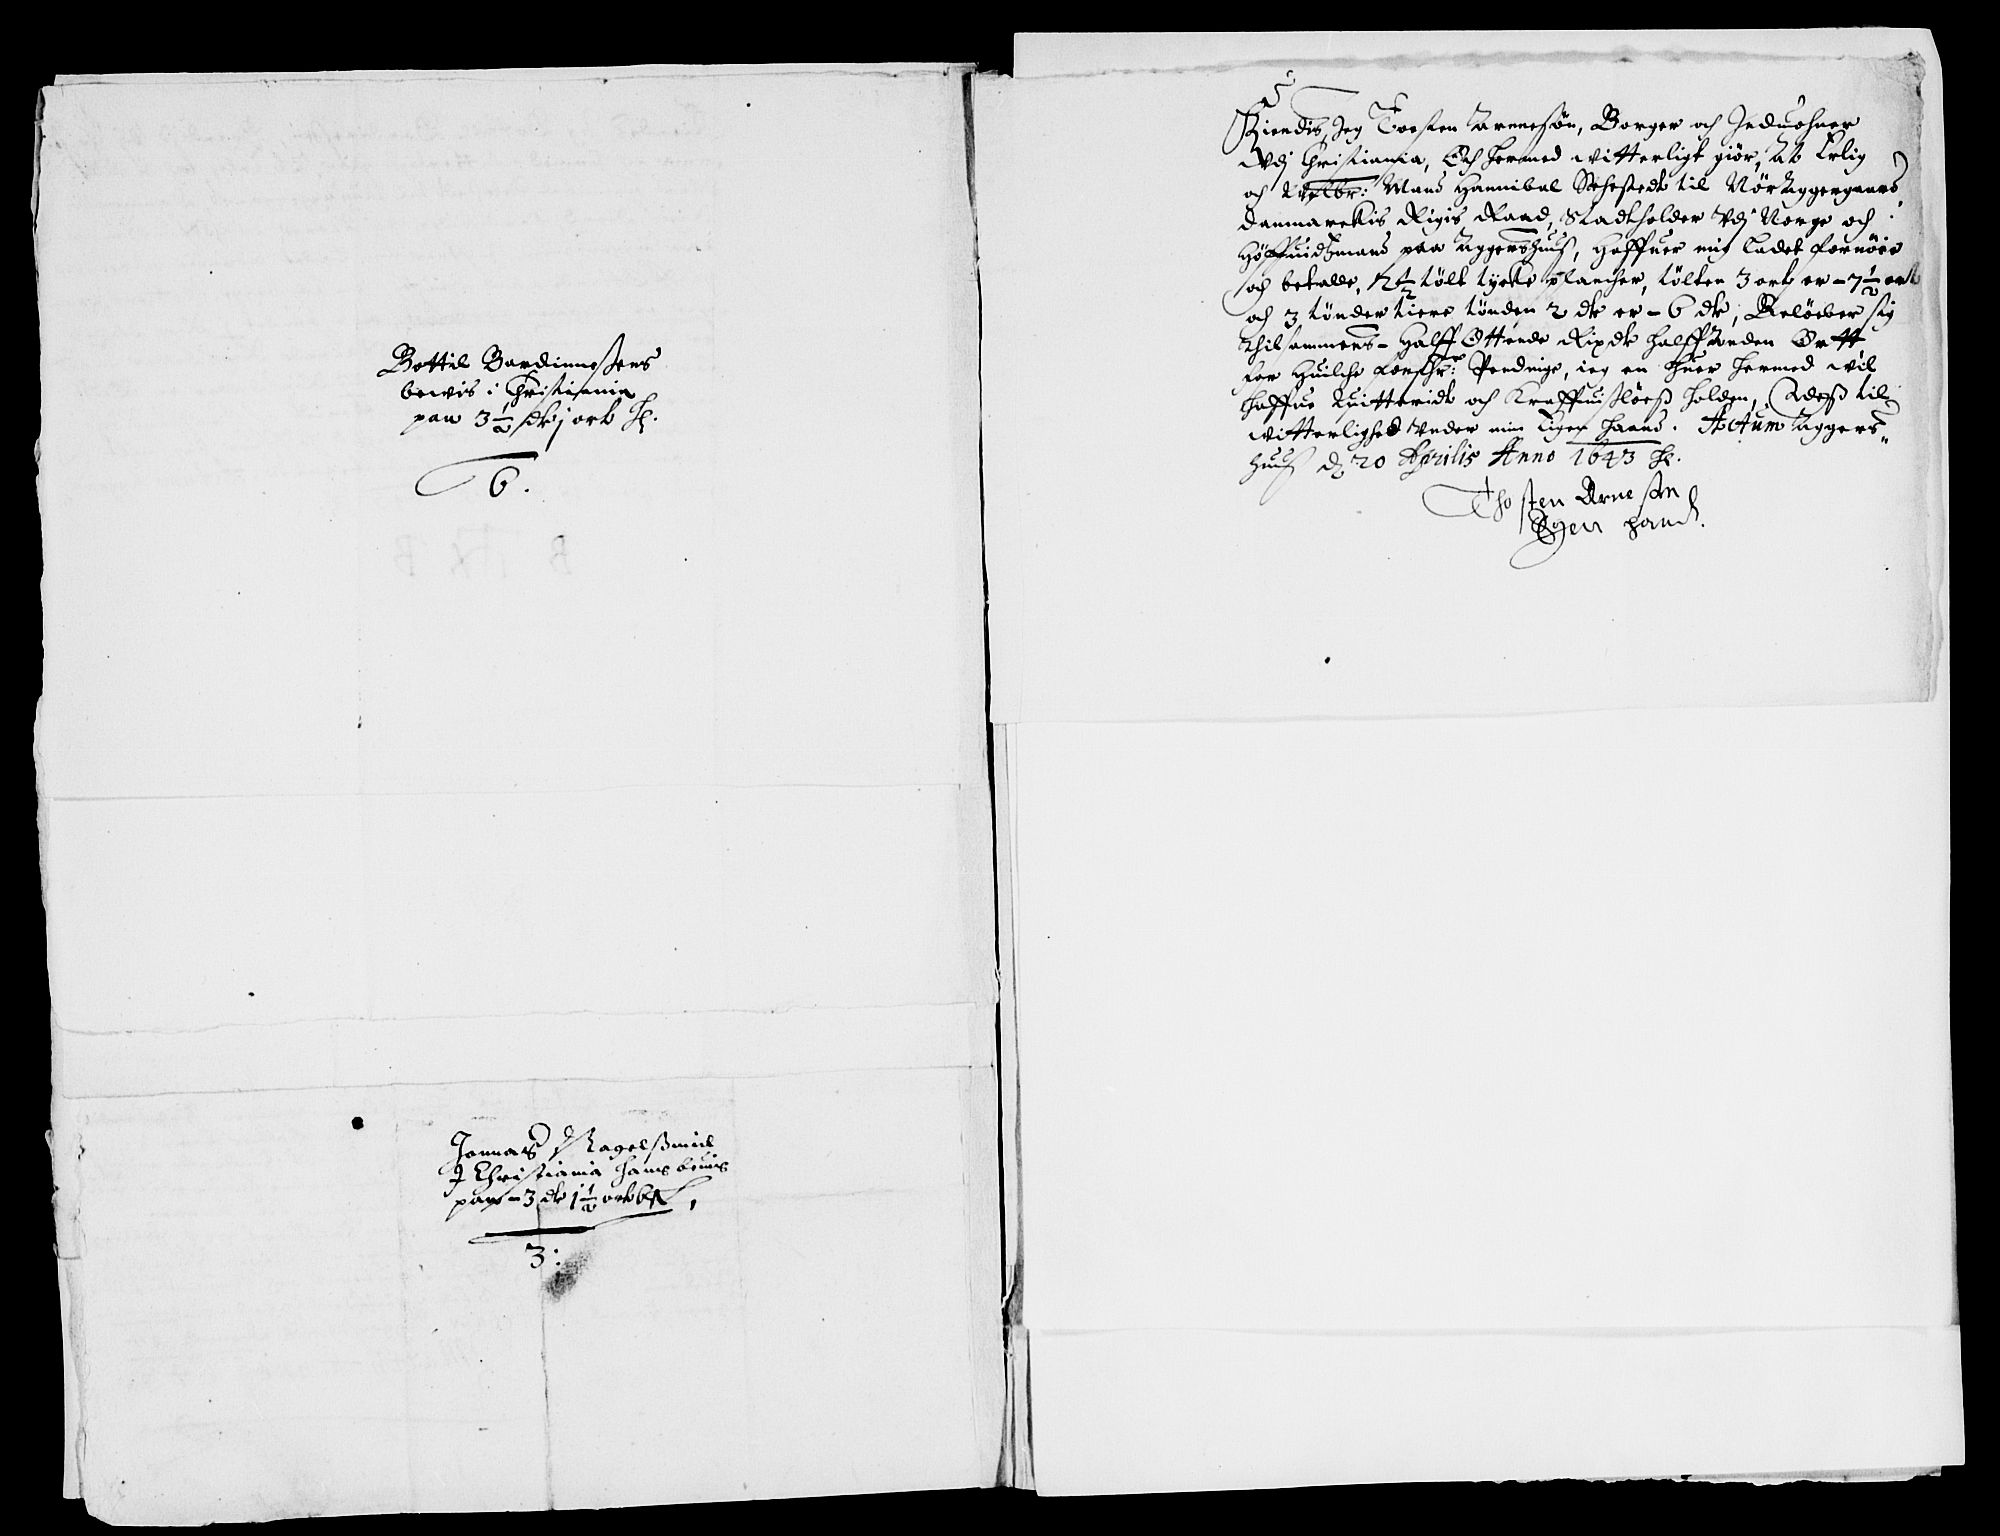 Bottil Bardinnesens
bewis i Christiania
paa 3½ dlr j ort
6.
Jonnas Nagelsmid
J Christiania hans beuis
paa - 3 dlr 1½ ort
3:
5
Kiendis Jeg Torsten Arnnesøn, Borger och Jnduohner
Vdj Christiania, Och hermed witterligt giør, At Erlig
och Welbr: Mand Hannibal Sehestedt til Nør Aggergaard
Danmarckis Rigis Raad, Stadtholder Vdj Norge och
Høffuidtzmand paa Aggershuus, Haffuer mig ladet fornøie
och betalle, 2½ tölt tycke plancher, tölten 3 ort er - 7½ ort
och 3 tønder tiere tønden 2 dlr er - 6 dlr, Beløeber sig
thilsammens - Halff Ottende Rixdlr halffanden Ortt
for Huilche forschr: Pendinge, ieg en huer hermed wil
haffue quitteridt och Kraffuisløess holden, Ades til
witterlighed Vnder min Eigen haand. Actum Aggers-
huus d 20 Aprilis Anno 1643
Thosten Arnesøn
Egen hand.